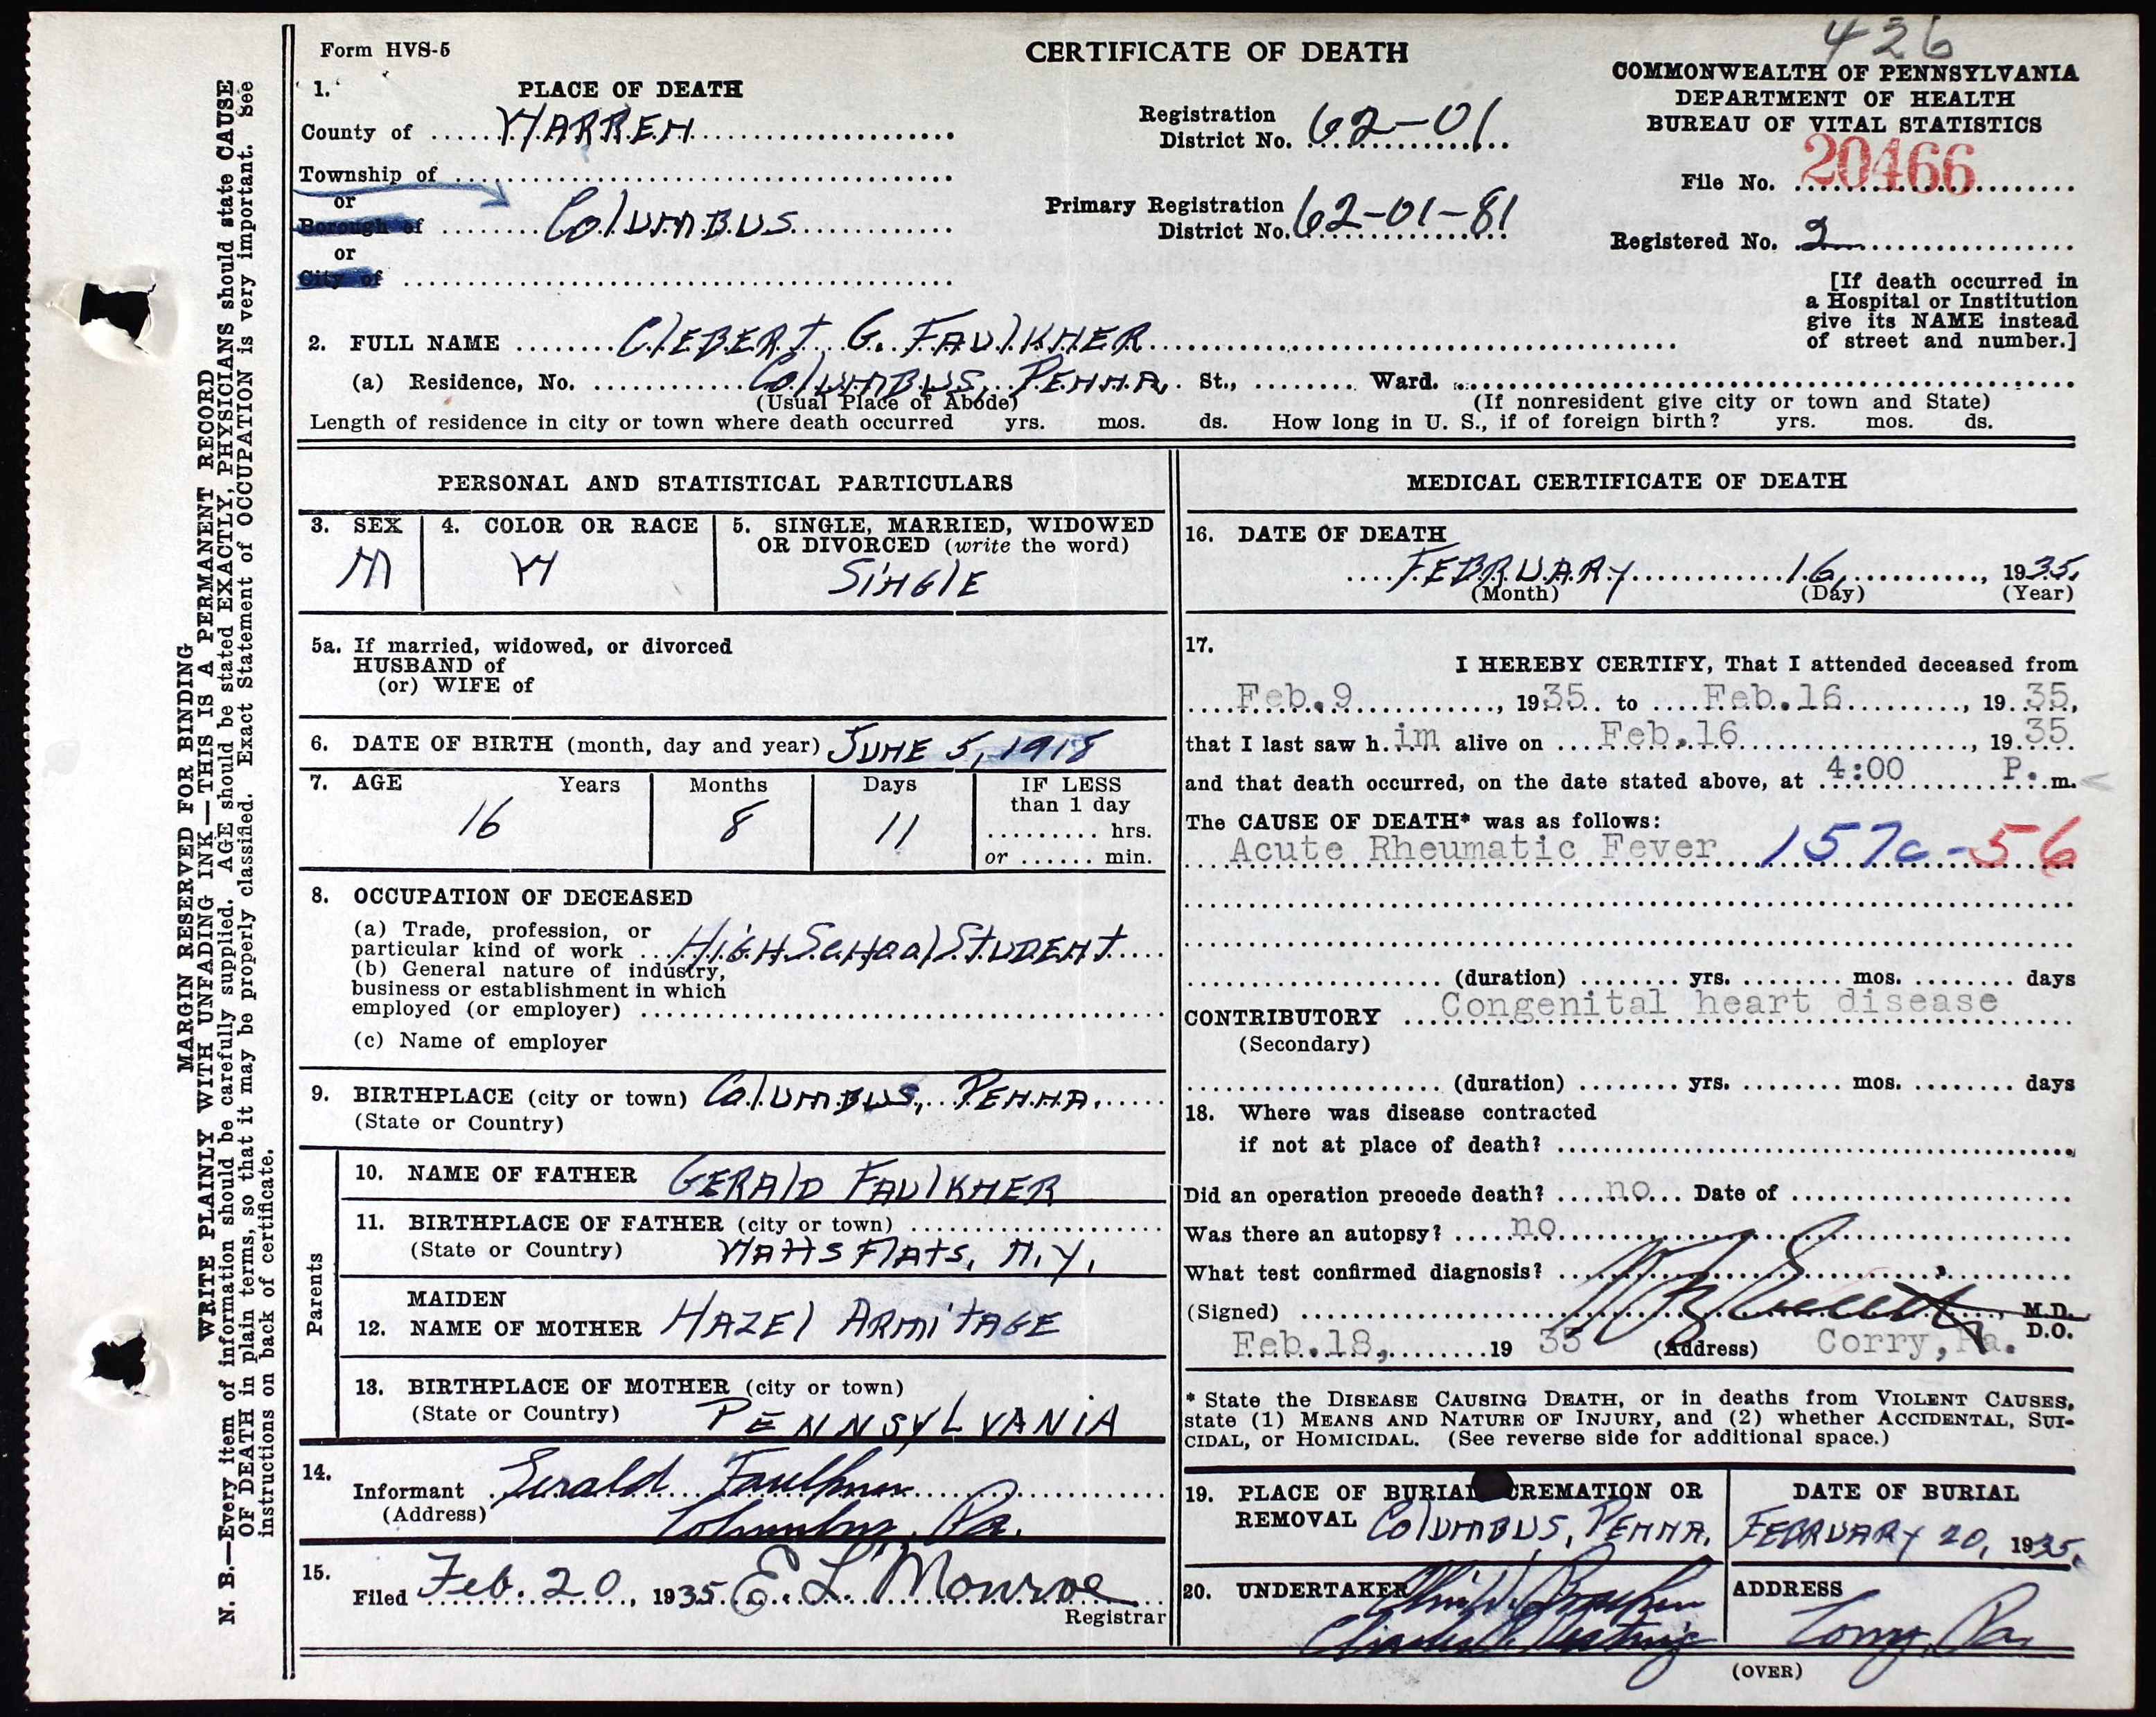 426
Form HVS-5
CERTIFICATE OF DEATH
COMMONWEALTH OF PENNSYLVANIA
DEPARTMENT OF HEALTH
BUREAU OF VITAL STATISTICS
File No. 20466
Registered No. 2
[If death occurred in
a Hospital or Institution
give its NAME instead
of street and number.]
1. PLACE OF DEATH
County of WARREN
Township of
or
Borough of COLUMBUS
or
City of
Registration
District No. 62-01
Primary Registration
District No. 62-01-81
2. FULL NAME CLEBERT G. FAULKNER
(a) Residence, No. COLUMBUS, PENNA. St., Ward.
(Usual Place of Abode) (If nonresident give city or town and State)
Length of residence in city or town where death occurred yrs. mos. ds. How long in U. S., if of foreign birth? yrs. mos. ds.
PERSONAL AND STATISTICAL PARTICULARS
3. SEX
M
4. COLOR OR RACE
W
5. SINGLE, MARRIED, WIDOWED
OR DIVORCED (write the word)
SINGLE
5a. If married, widowed, or divorced
HUSBAND of
(or) WIFE of
6. DATE OF BIRTH (month, day and year) JUNE 5, 1918
7. AGE Years Months Days IF LESS
than 1 day
16 8 11
hrs.
or min.
8. OCCUPATION OF DECEASED
(a) Trade, profession, or
particular kind of work HIGH SCHOOL STUDENT
(b) General nature of industry,
business or establishment in which
employed (or employer)
(c) Name of employer
9. BIRTHPLACE (city or town) COLUMBUS, PENNA.
(State or Country)
Parents
10. NAME OF FATHER GERALD FAULKNER
11. BIRTHPLACE OF FATHER (city or town)
(State or Country) WATTS FLATS, N.Y.
MAIDEN
12. NAME OF MOTHER HAZEL ARMITAGE
13. BIRTHPLACE OF MOTHER (city or town)
(State or Country) PENNSYLVANIA
14.
Informant Gerald Faulkner
(Address) Columbus, Pa.
15.
Filed Feb. 20, 1935 E. L. Monroe
Registrar
MEDICAL CERTIFICATE OF DEATH
16. DATE OF DEATH
FEBRUARY 16, 1935.
(Month) (Day) (Year)
17.
I HEREBY CERTIFY, That I attended deceased from
Feb.9, 1935 to Feb.16, 1935,
that I last saw him alive on Feb.16, 1935
and that death occurred, on the date stated above, at 4:00 P. m.
The CAUSE OF DEATH* was as follows:
Acute Rheumatic Fever 157c-56
(duration) yrs. mos. days
CONTRIBUTORY Congenital heart disease
(Secondary)
(duration) yrs. mos. days
18. Where was disease contracted
if not at place of death?
Did an operation precede death? no Date of
Was there an autopsy? no
What test confirmed diagnosis?
(Signed) M.D.
D.O.
Feb.18, 1935 (Address) Corry, Pa.
* State the DISEASE CAUSING DEATH, or in deaths from VIOLENT CAUSES,
state (1) MEANS AND NATURE OF INJURY, and (2) whether ACCIDENTAL, SUI-
CIDAL, or HOMICIDAL. (See reverse side for additional space.)
19. PLACE OF BURIAL CREMATION OR
REMOVAL COLUMBUS, PENNA.
DATE OF BURIAL
FEBRUARY 20, 1935.
20. UNDERTAKER
ADDRESS
Corry, Pa
(OVER)
MARGIN RESERVED FOR BINDING
WRITE PLAINLY WITH UNFADING INK—THIS IS A PERMANENT RECORD
N. B.—Every item of information should be carefully supplied. AGE should be stated EXACTLY, PHYSICIANS should state CAUSE
OF DEATH in plain terms, so that it may be properly classified. Exact Statement of OCCUPATION is very important. See
instructions on back of certificate.